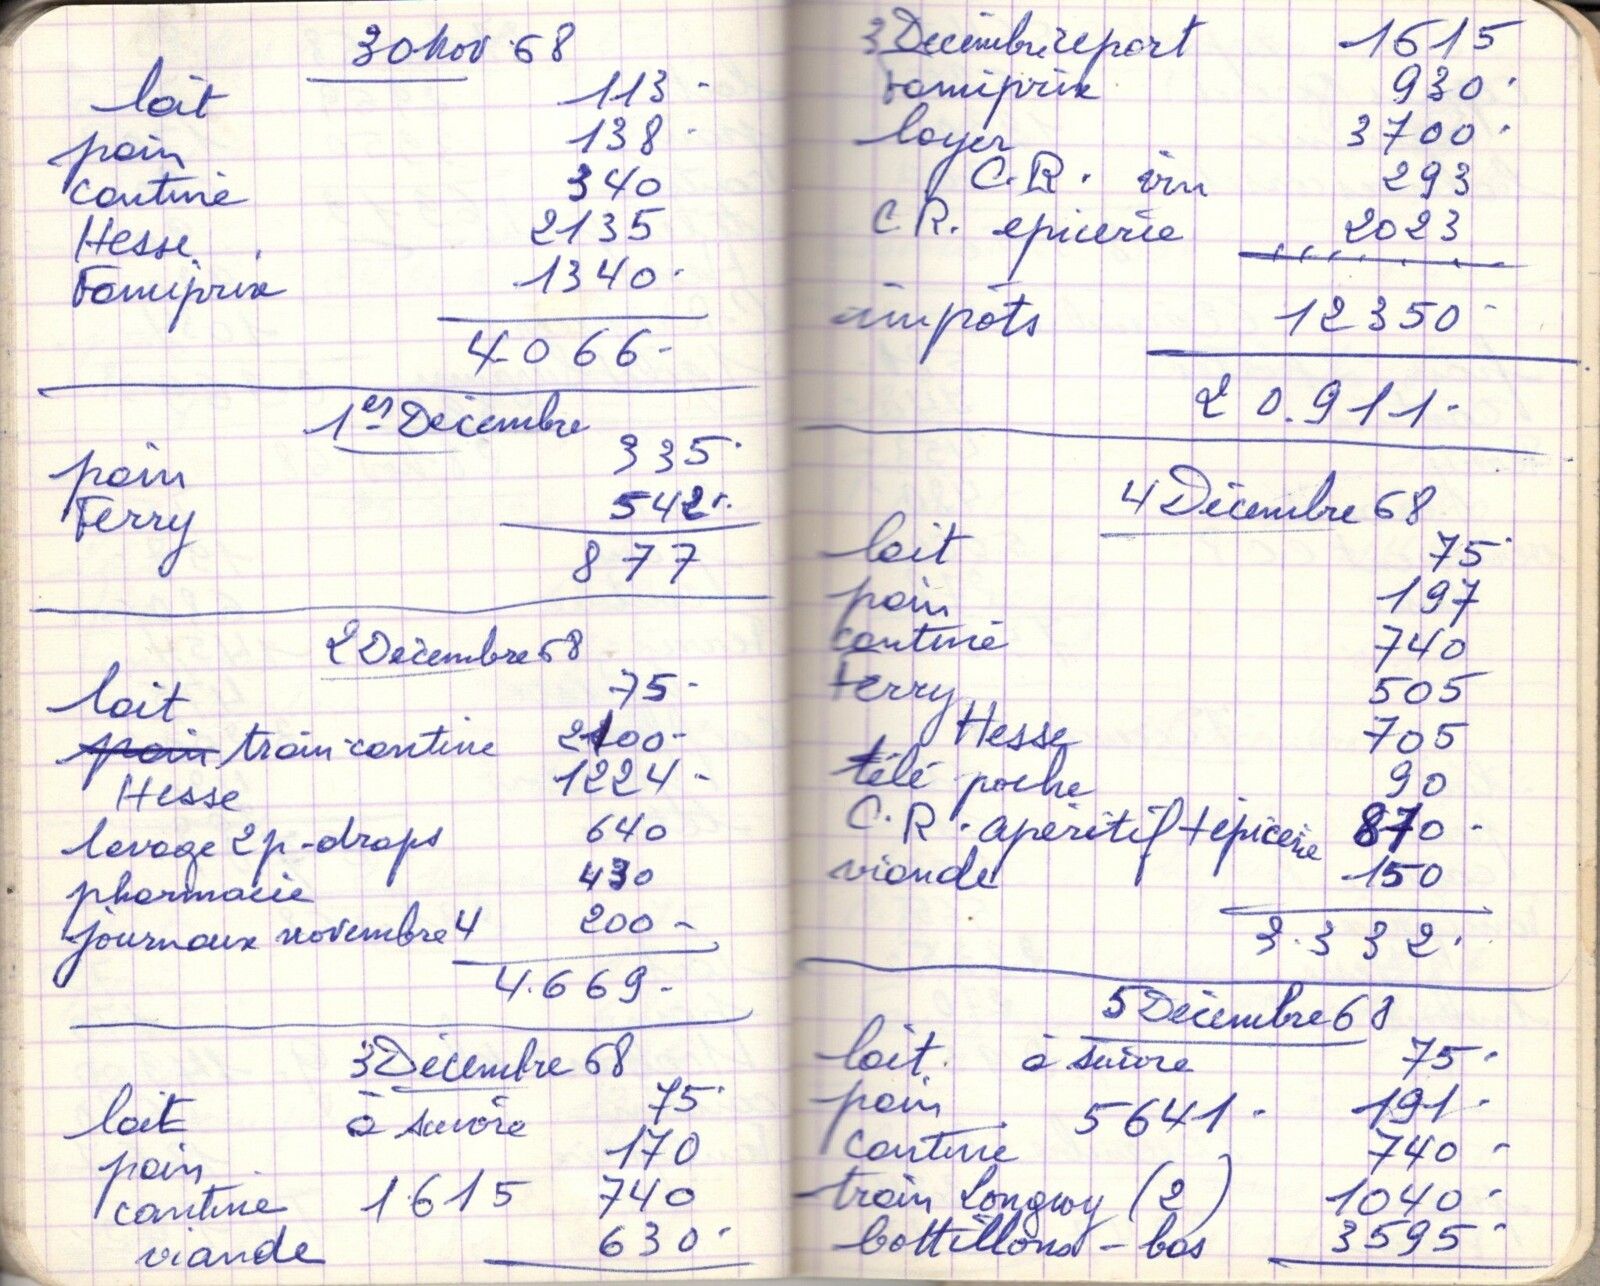 30 Nov. 68
lait 113-
pain 138-
cantine 340
Hesse 2135
Famiprix 1340-
4066-
1er Décembre
pain 335-
Ferry 542-
877
2 Décembre 68
lait 75-
pain train-cantine 2100-
Hesse 1224-
lavage 2p-draps 640
pharmacie 430
journaux novembre 4 200-
4.669-
3 Décembre 68
lait à suivre 75-
pain 170
cantine 1615 740
viande 630-
3 Décembre report 1615
Famiprix 930-
loyer 3700-
C.R. vin 293
C.R. epicerie 2023
impôts 12350-
20.911-
4 Décembre 68
lait 75-
pain 197
cantine 740
Ferry 505
Hesse 705
télé poche 90
C.R. apéritif + épicerie 870-
viande 150
3.332-
5 Décembre 68
lait à suivre 75-
pain 5641- 191-
cantine 740-
train Longwy (2) 1040-
bottillons - bas 3595-